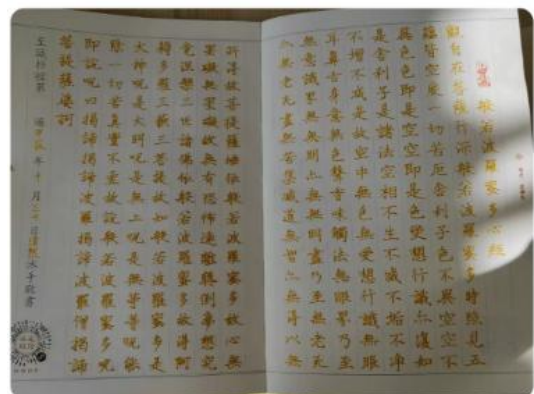 般若波羅蜜多心經
觀自在菩薩行深般若波羅蜜多時照見五
蘊皆空度一切苦厄舍利子色不異空空不
異色色即是空空即是色受想行識亦復如
是舍利子是諸法空相不生不滅不垢不淨
不增不減是故空中無色無受想行識無眼
耳鼻舌身意無色聲香味觸法無眼界乃至
無意識界無無明亦無無明盡乃至無老死
亦無老死盡無苦集滅道無智亦無得以無
所得故菩提薩埵依般若波羅蜜多故心無
罣礙無罣礙故無有恐怖遠離顛倒夢想究
竟涅槃三世諸佛依般若波羅蜜多故得阿
耨多羅三藐三菩提故知般若波羅蜜多是
大神咒是大明咒是無上咒是無等等咒能
除一切苦真實不虛故說般若波羅蜜多咒
即說咒曰揭諦揭諦波羅揭諦波羅僧揭諦
菩提薩婆訶
年十月 日 沐手敬書